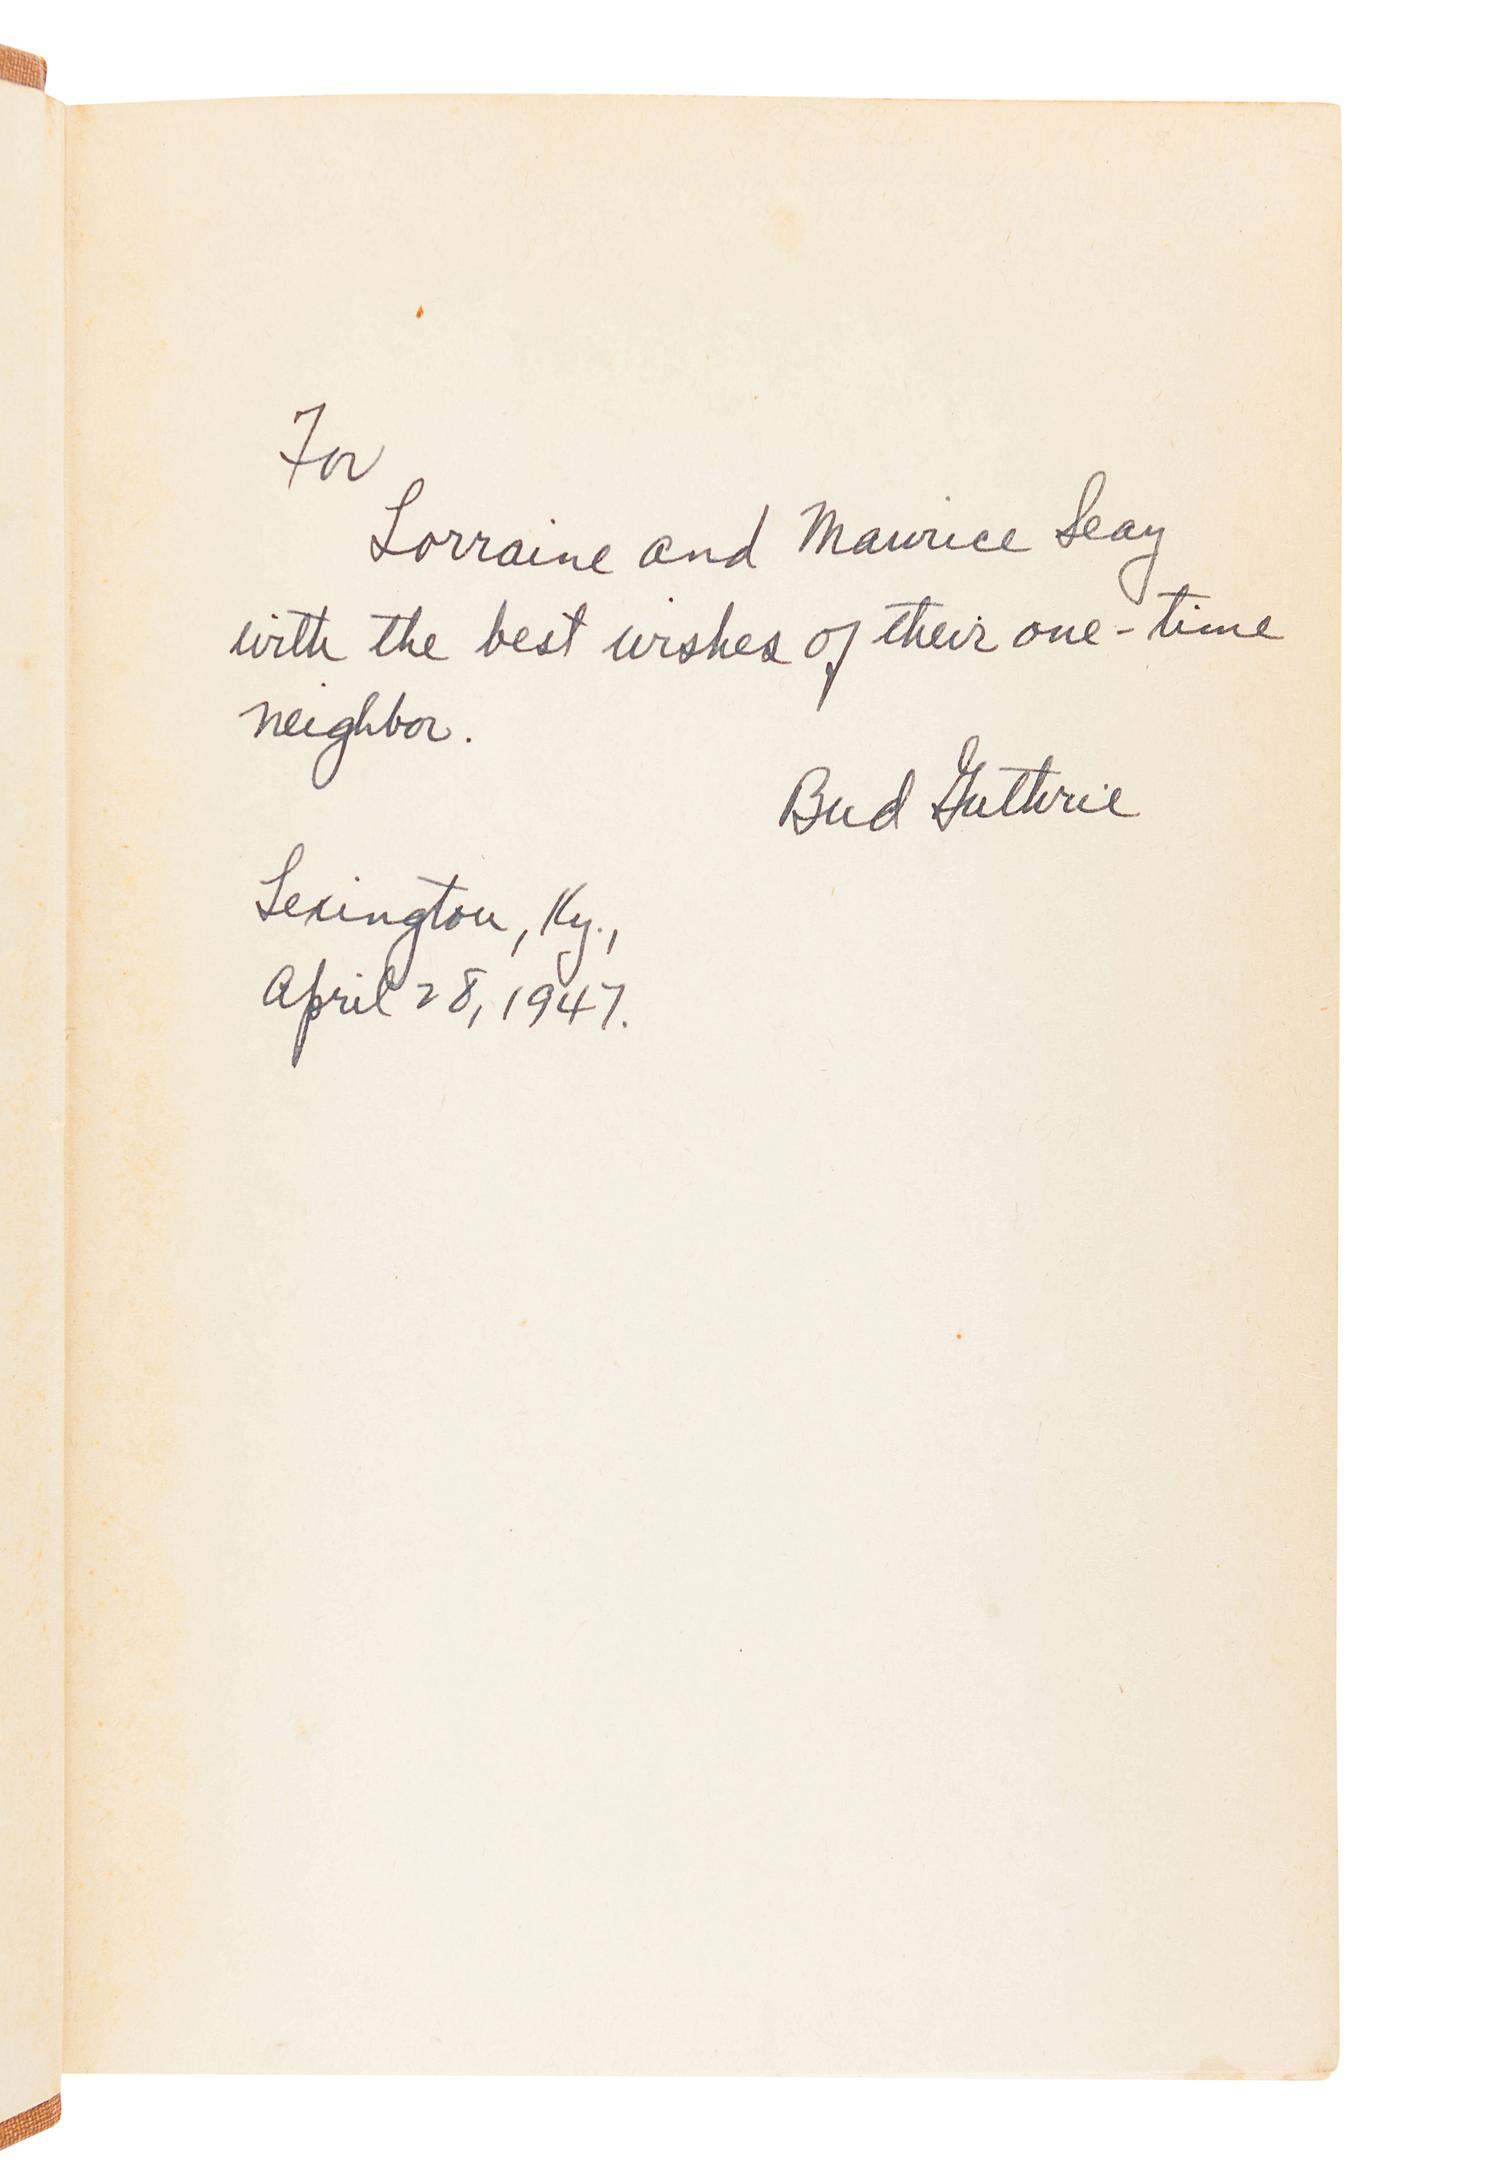 For
Lorraine and Maurice Seay
with the best wishes of their one-time
neighbor.
Bud Guthrie
Lexington, Ky.,
April 28, 1947.